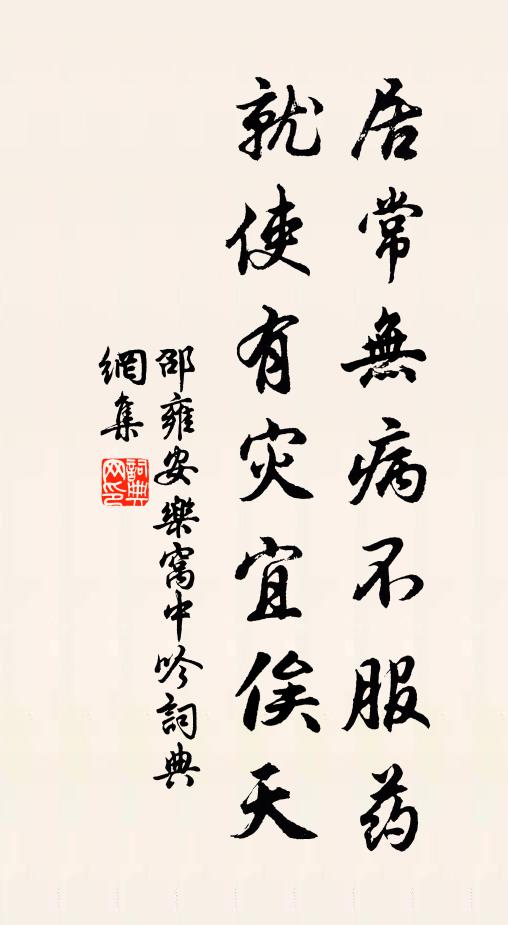 居常無病不服药
就使有灾宜俟天
邵雍安樂窩中吟詞典
網集
詞典
网印